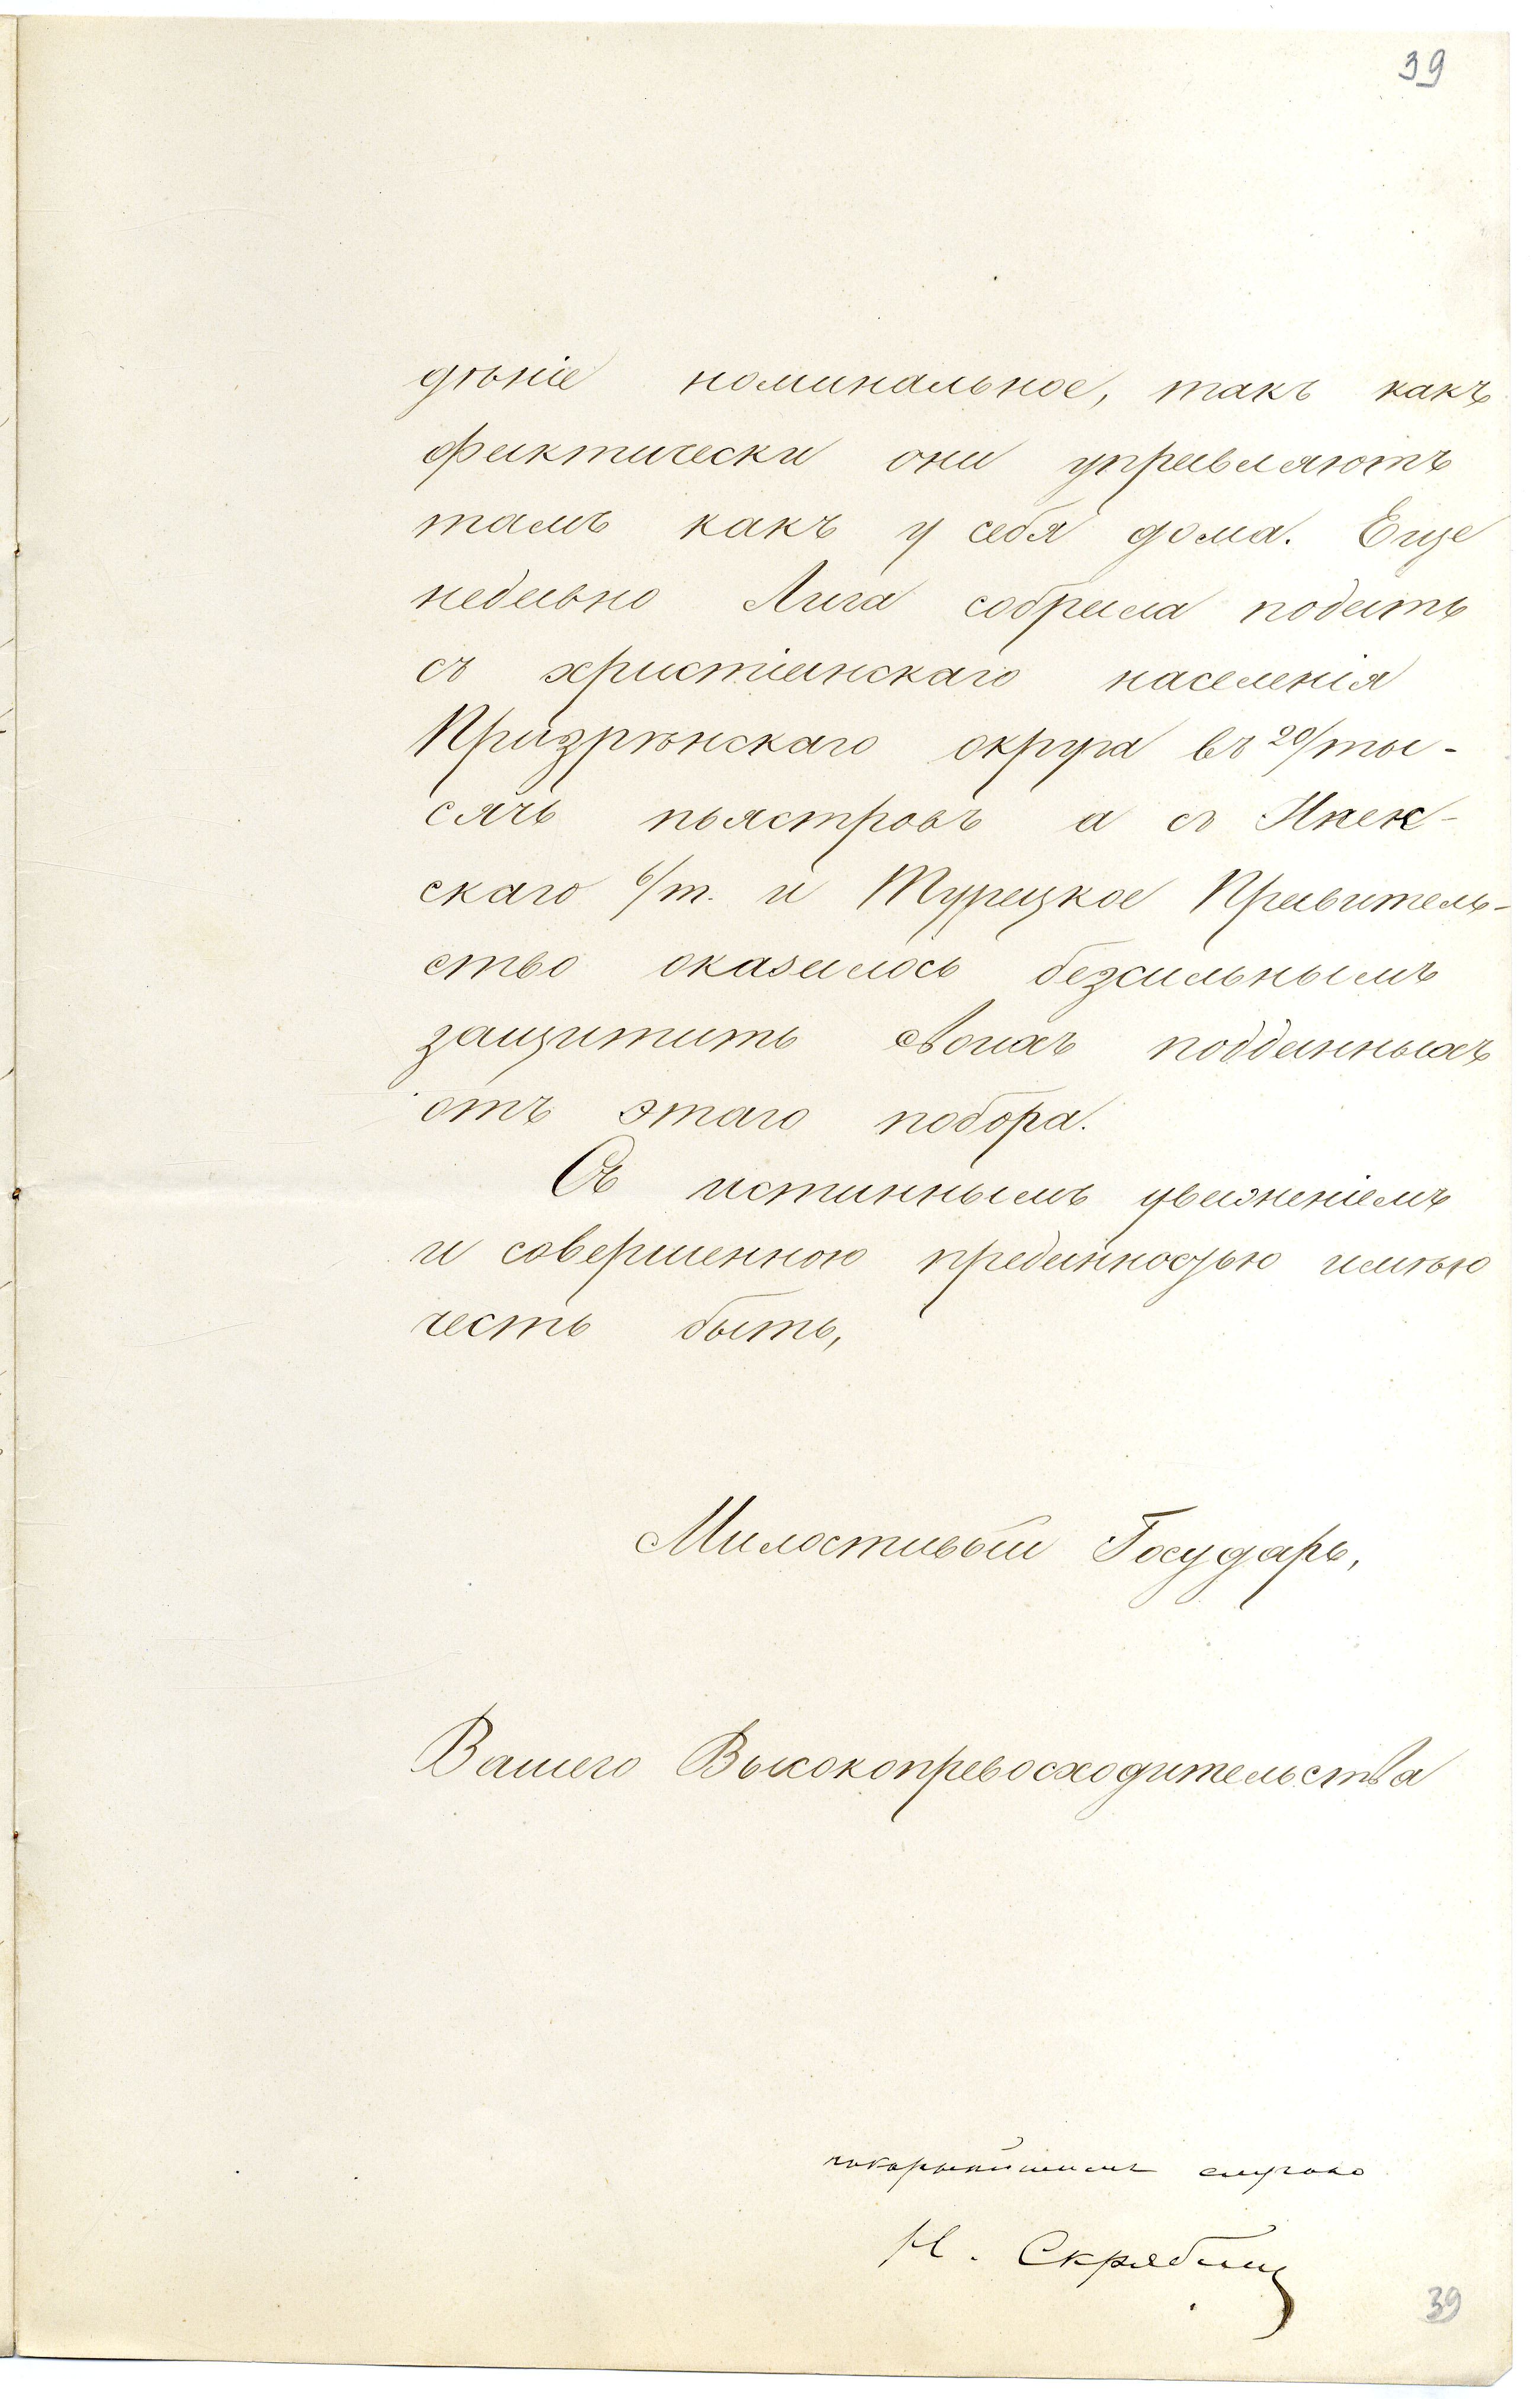 39
дѣніе номинальное, такъ какъ
фактически они управляютъ
тамъ какъ у себя дома. Еще
недавно Лига собрала подать
съ христіанскаго населенія
Призрѣнскаго округа въ 20/ты-
сячъ пьястровъ а съ Ипек-
скаго 6/т. и Турецкое Правитель-
ство оказалось безсильнымъ
защитить своихъ подданныхъ
отъ этаго побора.
Съ истиннымъ уваженіемъ
и совершенною преданностью имѣю
честь быть,
Милостивый Государь,
Вашего Высокопревосходительства
покорнѣйшимъ слугою
Н. Скрябинъ
39